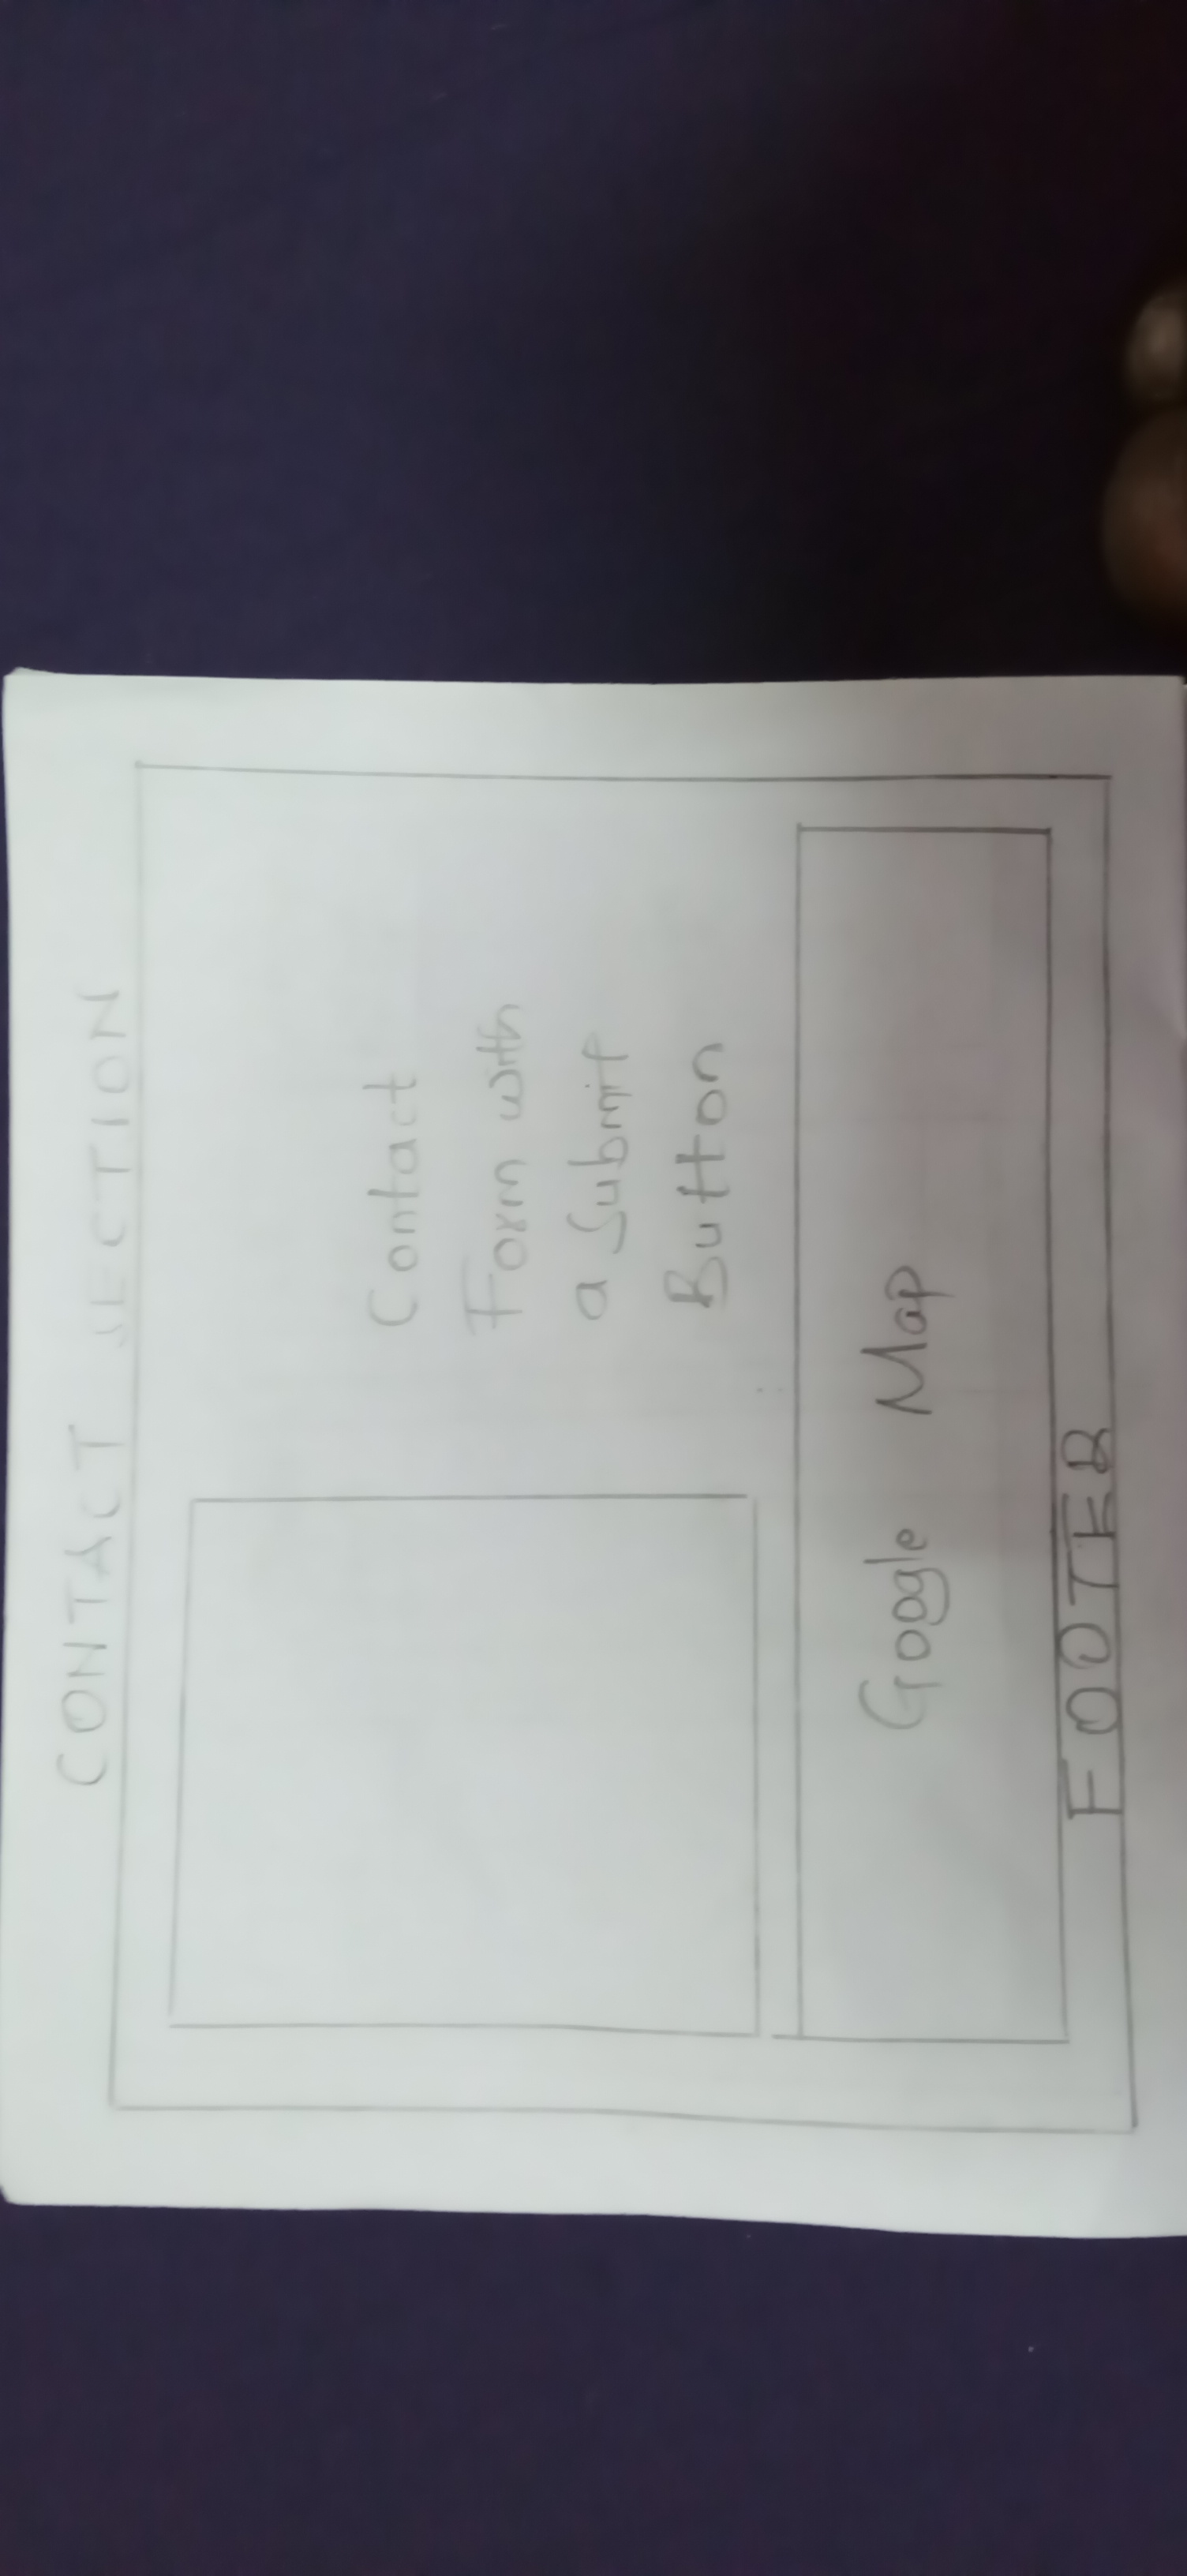 CONTACT SECTION
Contact
Form with
a Submit
Button
Google Map
FOOTER